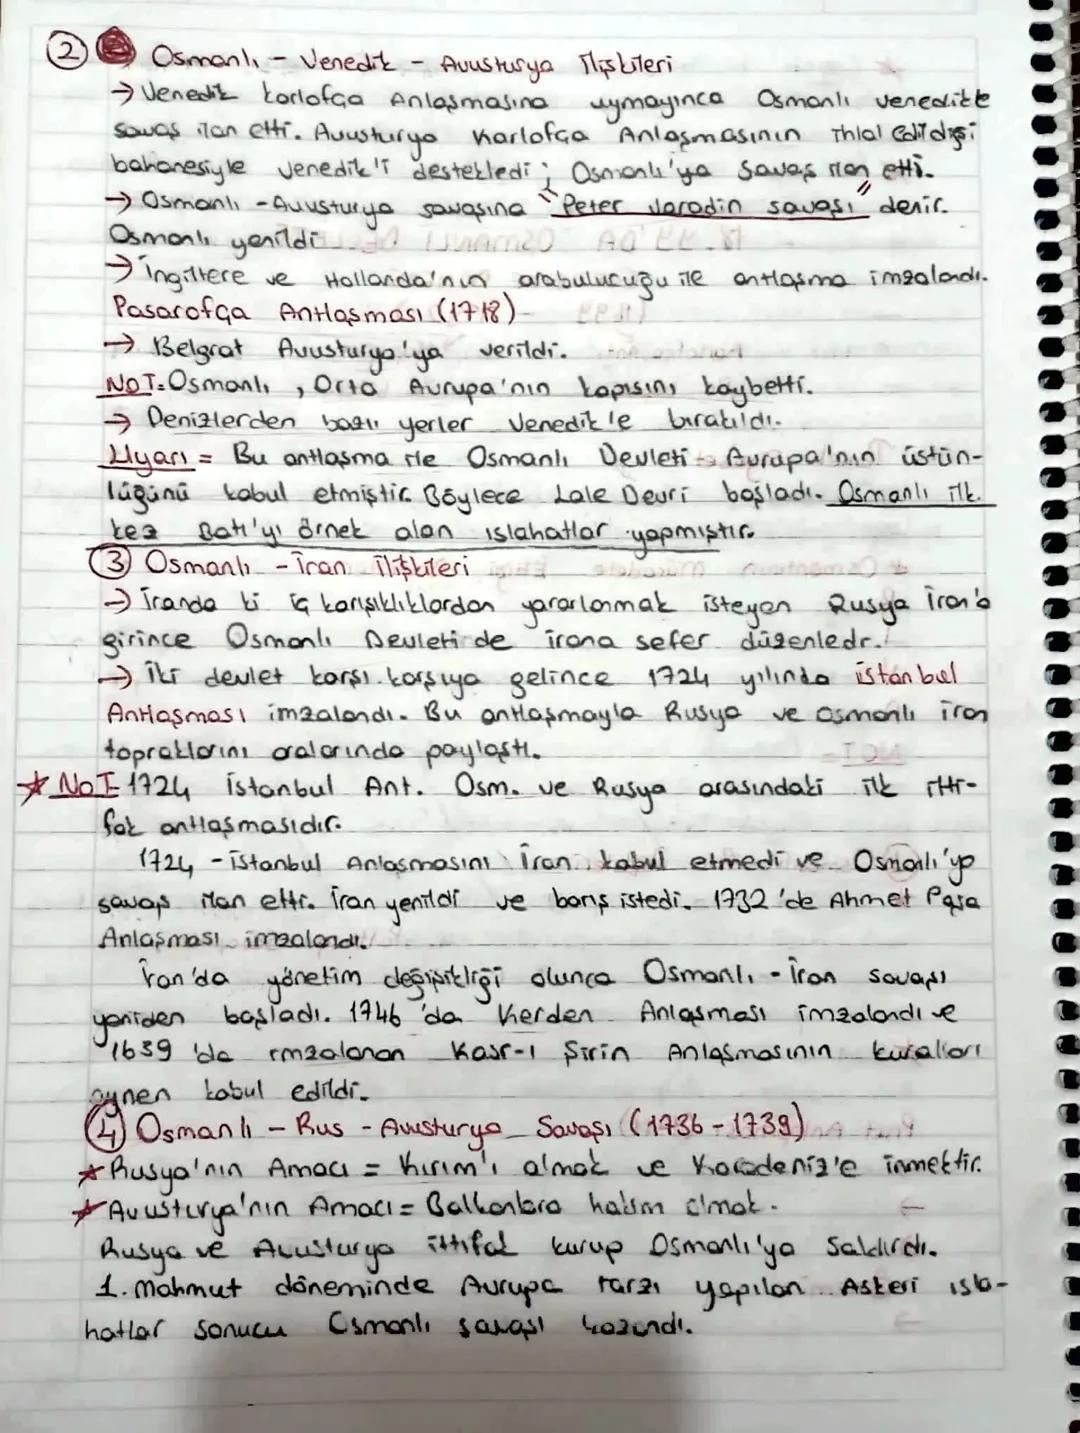 2 Osmanlı - Venedik - Avusturya İlişkileri
→ Venedik Karlofça Anlaşmasına uymayınca Osmanlı venedikte
savaş ilan etti. Avusturya Karlofça Anlaşmasının ihlal edildiği
bahanesiyle Venedik'i destekledi; Osmanlı'ya Savaş ilan etti.
→ Osmanlı - Avusturya savaşına "Peter Varadin savaşı" denir.
Osmanlı yenildi
→ İngiltere ve Hollanda'nın arabulucuğu ile antlaşma imzalandı.
Pasarofça Antlaşması (1718)
→ Belgrat Avusturya'ya verildi.
NOT= Osmanlı, Orta Avrupa'nın kapısını kaybetti.
→ Denizlerden bazlı yerler Venedik'e bırakıldı.
Uyarı = Bu antlaşma ile Osmanlı Devleti Avrupa'nın üstün-
lüğünü kabul etmiştir. Böylece Lale Devri başladı. Osmanlı ilk
kez Batı'yı örnek alan ıslahatlar yapmıştır.
3 Osmanlı - İran İlişkileri
→ İranda ki iç karışıklıklardan yararlanmak isteyen Rusya İran'a
girince Osmanlı Devleti de irana sefer düzenledr.
→ İki devlet karşı karşıya gelince 1724 yılında İstanbul
Antlaşması imzalandı. Bu antlaşmayla Rusya ve Osmanlı iran
topraklarını aralarında paylaştı.
★ NOT= 1724 İstanbul Ant. Osm. ve Rusya arasındaki ilk itti-
fak antlaşmasıdır.
1724 - İstanbul Anlaşmasını İran kabul etmedi ve Osmanlı'ya
savaş ilan etti. İran yenildi ve barış istedi. 1732'de Ahmet Paşa
Anlaşması imzalandı.
İran'da yönetim değişikliği olunca Osmanlı - İran savaşı
yeniden başladı. 1746'da Kerden Anlaşması imzalandı ve
1639'da imzalanan Kasr-ı Şirin Anlaşmasının kuralları
aynen kabul edildi.
4 Osmanlı - Rus - Avusturya Savaşı (1736-1739)
★ Rusya'nın Amacı = Kırım'ı almak ve Karadeniz'e inmektir.
★ Avusturya'nın Amacı = Balkanlara hakim olmak.
Rusya ve Avusturya ittifak kurup Osmanlı'ya Saldırdı.
1. Mahmut döneminde Avrupa tarzı yapılan Askeri ısla-
hatlar sonucu Osmanlı savaşı kazandı.